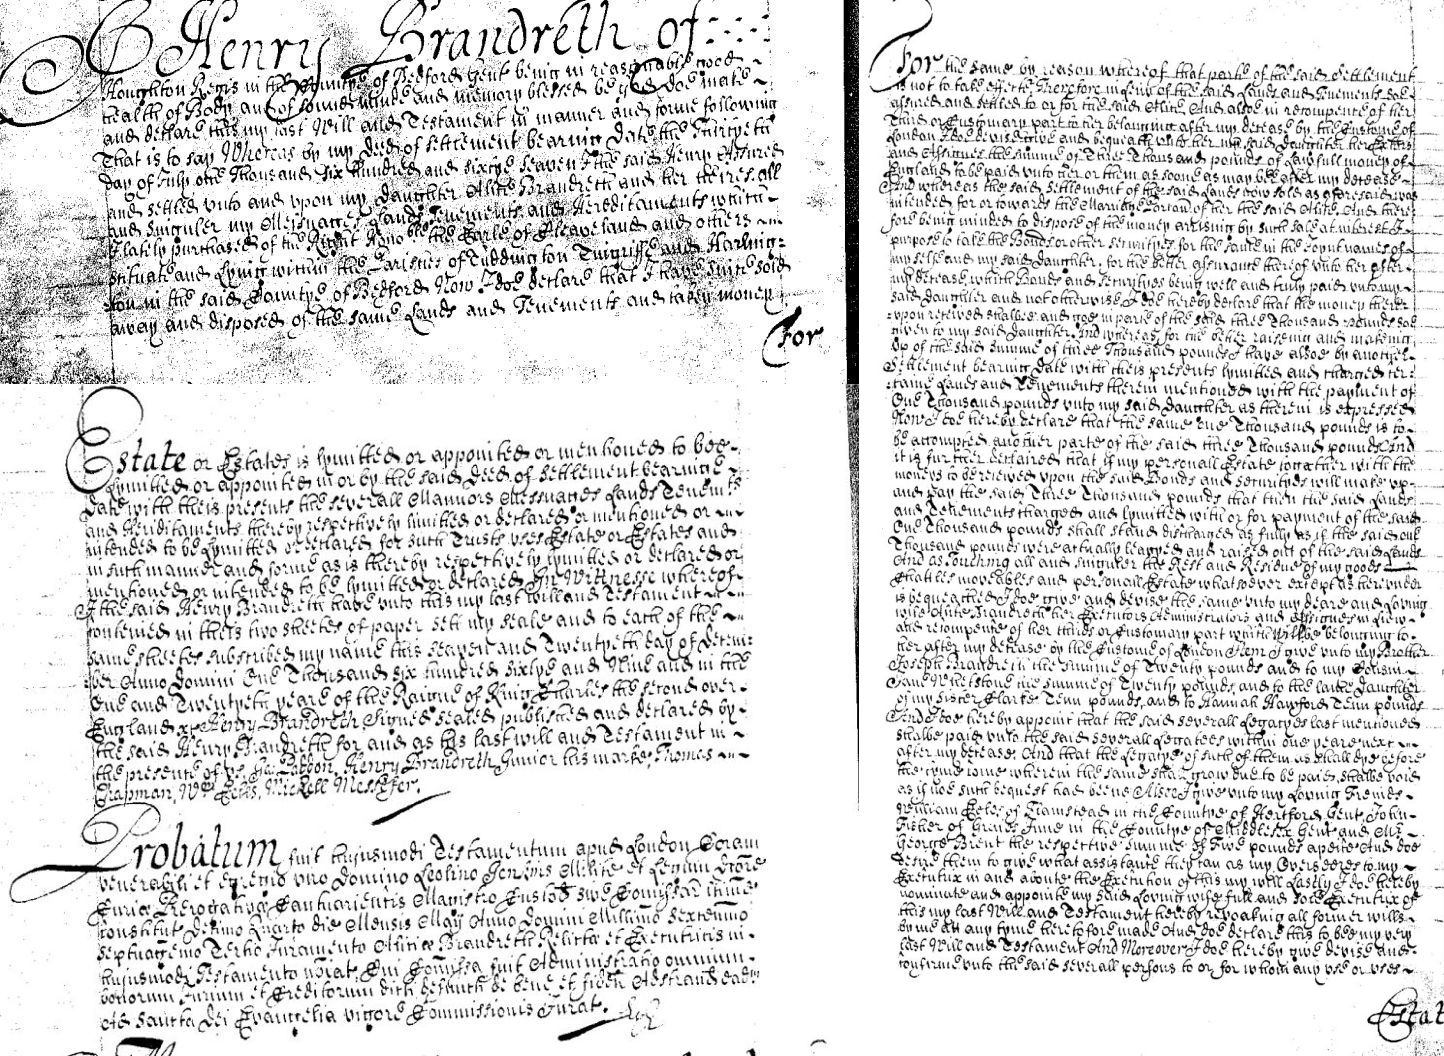 I Henry Brandreth of
Houghton Regis in the Countye of Bedford Gent being in reasonable good
health of Body and of sound minde and memory blessed be god doe make
and declare this my last Will and Testament in manner and forme following
That is to say Whereas by my Deed of settlement bearing date the Thirtyeth
day of July one Thousand six hundred and sixtye seaven I the said Henry Assured
and settled unto and upon my daughter Alice Brandreth and her heires all
and singuler my Messuages Lands Tenements and Hereditaments which
I lately purchased of the Right Honoble the Earle of Cleaveland and others
scituate and lying within the Parishes of Tuddington Tingriffe and Harling-
ton in the said Countye of Bedford Now I doe declare that I have since sold
away and disposed of the same Lands and Tenements and taken money
For
For the same by reason whereof that parte of the said settlement
is not to take effecte Therefore in lieu of the said Lands and Tenements soe
assured and settled to or for the said Alice And alsoe in recompence of her
Third or Customary part to her belonging after my decease by the Custome of
London I doe devise give and bequeath unto her my said daughter her Exors
and Assignes the summe of Three Thousand pounds of lawfull money of
England to be paid unto her or them as soone as may bee after my decease
And whereas the said settlement of the said Lands now sold as aforesaid was
intended for or towards the Marriage Portion of her the said Alice And there-
fore being minded to dispose of the money arising by such sale at interest I
purpose to take the Bonds or other securityes for the same in the name of
my selfe and my said daughter, for the better assurance thereof unto her after
my decease, which Bonds and securityes being well and truly paid unto my
said daughter and not otherwise I doe hereby declare that the money there-
upon received shalbee and goe in parte of the said three Thousand pounds soe
given to my said daughter, And whereas for the better raiseing and makeing
up of the said summe of three Thousand pounds I have alsoe by another
Settlement bearing date with theis presents lymitted and charged cer-
taine Lands and Tenements therein mentioned with the payment of
One Thousand pounds unto my said daughter as therein is expressed
Now I doe hereby declare that the same one Thousand pounds is to
be accompted another parte of the said three Thousand pounds And
it is further declared that if my personall Estate together with the
moneys to be received upon the said Bonds and securityes will make up
and pay the said Three Thousand pounds that then the said Lands
and Tenements charged and lymitted with or for payment of the said
One Thousand pounds shall stand discharged as fully as if the said one
Thousand pounds were actually leavyed and raised out of the said Lands
And as Touching all and singuler the Rest and Residue of my goods
Chattles moveables and personall Estate whatsoever except as hereunder
is bequeathed I doe give and devise the same unto my deare and loving
wife Alice Brandreth her Executors Administrators and Assignes in liew
and recompence of her thirds or Customary part which wilbe belonging to
her after my decease by the Custome of London Item I give unto my Brother
Joseph Brandreth the summe of Twenty pounds and to my Cousin
Jane Whetstone the summe of Twenty pounds, and to the daughter
of my Sister Clarke Tenn pounds, and to Hannah Hayford Tenn pounds
And I doe hereby appoint that the said severall Legacyes last mentioned
shalbe paid unto the said severall Legatees within one yeare next
after my decease, And that the Legacye of such of them as shall dye before
the tyme wherein the same shall grow due to be paid, shalbe void
as if noe such bequest had beene Alsoe I give unto my loving Friends
William Eeles of Flamstead in the Countye of Hertford Gent, John
Fisher of Graies Inne in the Countye of Middlesex Gent and Mr
George Brent the respective summe of Five pounds apeice And doe
desire them to give what assistance they can as my Overseeres to my
Executrix in and aboute the Execution of this my will Lastly I doe hereby
nominate and appointe my said Loving wife full and sole Executrix of
this my last Will and Testament hereby revoaking all former wills
by me at any tyme heretofore made And doe declare this to bee my very
last Will and Testament And Moreover I doe hereby give devise and
confirme unto the said severall persons to or for whom any use or uses
Estate
Estate or Estates is lymitted or appointed or mentioned to bee
Lymitted or appointed in or by the said Deed of settlement bearinge
date with theis presents the severall Mannors Messuages Lands Tenemts
and Hereditaments thereby respectively limitted or declared or mentioned or
intended to be lymitted or declared for such Trusts uses Estate or Estates and
in such manner and forme as is thereby respectively lymitted or declared or
mentioned or intended to be lymitted or declared In Witnesse whereof
I the said Henry Brandreth have unto this my last will and Testament
conteined in theis two sheetes of paper sett my seale and to each of the
same sheetes subscribed my name this seaven and Twentyeth day of Decem-
ber Anno Domini One Thousand six hundred sixtye and Nine and in the
One and Twentyeth yeare of the Raigne of King Charles the second over
England &c Henry Brandreth Signed sealed published and declared by
the said Henry Brandreth for and as his last will and Testament in
the presence of us, Henry Brandreth Junior his marke, Thomas
Chapman, Wm Eeles, Michell Messeser.
Probatum fuit hujusmodi Testamentum apud London Coram
venerabili et egregio viro Domino Leolino Jenkins Milite et Legum Dcore
Curiæ Prerogativæ Cantuariensis Magistro Custod sive Comissar ltime
constitut Decimo Quarto die Mensis Maij Anno Domini Millimo Sexcenmo
septuagemo Tertio Juramento Aliciæ Brandreth Relicta et Executricis in
hujusmodi Testamento noiat Cui Comissa fuit Administratio omnium
bonorum Jurium et Creditorum dicti defuncti De bene et fidelr Adstrand eadm
Ad Sancta Dei Evangelia vigore Commissionis Jurat.